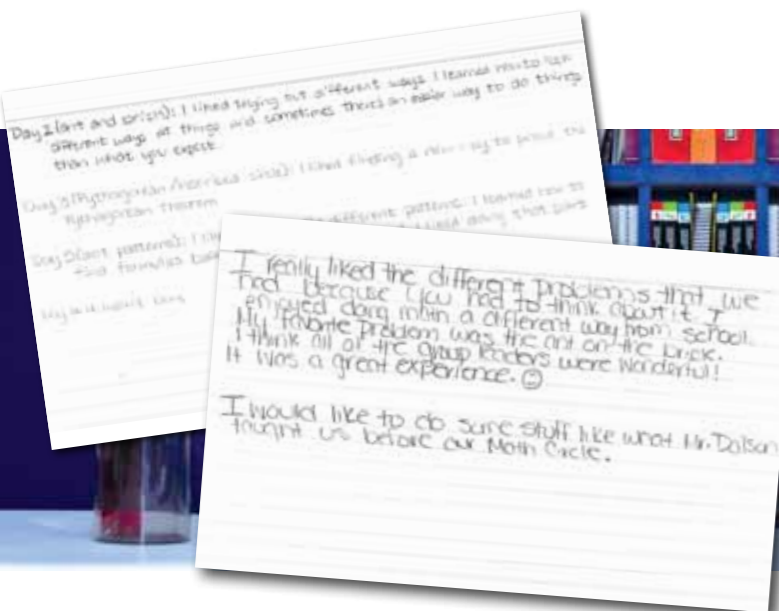 Day 2 (ant and brick): I liked trying out different ways. I learned how to look
different ways at things and sometimes there's an easier way to do things
than what you expect.
Day 3 (Pythagorean/ ): I liked finding a new way to prove the
Pythagorean Theorem
Day 5 (ant patterns): I different patterns. I learned how to
find formulas liked doing that part
I really liked the different problems that we
had because you had to think about it. I
enjoyed doing math in a different way from school.
My favorite problem was the ant on the brick.
I think all of the group leaders were wonderful!
It was a great experience. ☺
I would like to do some stuff like what Mr. Dolson
taught us before our Math Circle.